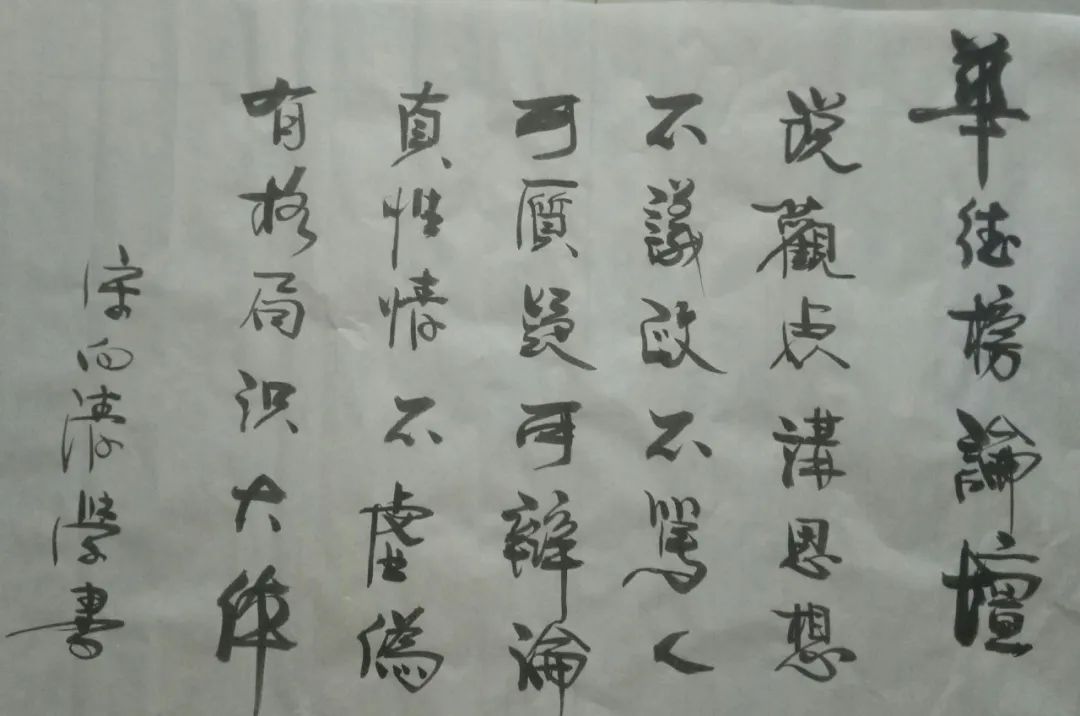 華德榜論壇
说觀点講恩想
不議政不骂人
可質疑可辯論
真性情不虚偽
有格局识大体
宋向清學書